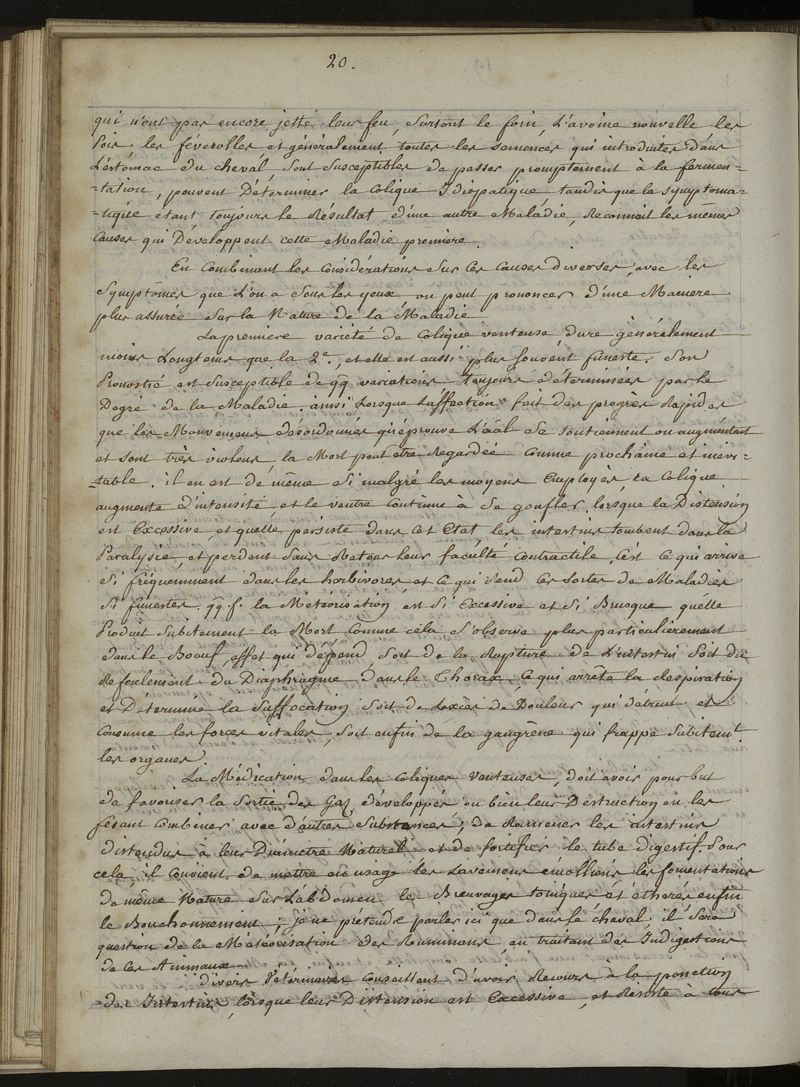 20.
qui n'ont pas encore jetté leur feu, Surtout le foin, L'avoine nouvelle les
Pois les féverolles et généralement toutes les semences qui introduites dans
L'estomac du cheval, Sont susceptibles de passer promptement à la fermen=
=tation, peuvent Déterminer la colique Idiopatique tandis que la symptoma=
=tique étant toujours le Résultat d'une autre Maladie, Reconnait les mêmes
Causes qui Développent cette Maladie première.
En Combinant les Considérations Sur les Causes diverses, avec les
Symptômes que L'on a Sous les yeux on peut prononcer d'une Maniere
plus assurée Sur la Nature de la Maladie
La première variété de Colique venteuse, dure généralement
moins Longtems que la 2e, et elle est aussi plus Souvent funeste, Son
Pronostic est Susceptible de qq variations toujours déterminées par le
Degré de la Maladie. ainsi Lorsque L'affection fait des progrès Rapides
que les Mouvemens désordonnés qu'éprouve L'aãl Se Soutiennent ou augmentent
et sont très violens, la Mort peut être Regardée Comme prochaine et inévi=
=table. il en est de même Si malgré les moyens Employés, La Colique
augmente d'intensité, et le ventre Continue à Se gonfler, lorsque la Distension
est Excessive, et qu'elle persiste dans cet Etat, les intestins tombent dans la
Paralysie, et perdent Sans Retour leur faculté Contractile, C'est Ce qui arrive
Si fréquemment dans les herbivores et Ce qui Rend ces Sortes de Maladies
Si funestes. qq. f. la Météorisation est Si Excessive et Si Brusque qu'elle
Produit Subitement la Mort Comme cela S'observe plus particulièrement
dans le Boeuf, effet qui dépend, Soit de la Rupture de L'intestin Soit du
Refoulement du Diaphragme dans le Thorax, Ce qui arrête la Respiration
et Détermine la Suffocation Soit de L'excès de Douleur qui détruit et
Consume les forces vitales, Soit enfin de la gangrène qui frappe Subitemt.
les organes.
La Médication dans les Coliques Venteuses, doit avoir pour but
de favoriser la Sortie des Gaz développés ou bien leur Destruction en les
fesant Combiner avec d'autres Substances, de Ramener les intestins
distendus à leur Diamètre Naturel et de fortifier le tube digestif. Pour
cela, il Convient de mettre en usage les Lavemens émolliens, les fomentations
de même Nature Sur L'abdomen les Breuvages toniques et éthérés enfin
le Bouchonnement; je ne prétends parler ici que dans le cheval. il Sera
question de la Météorisation des Ruminans, en traitant des Indigestions
de ces Animaux
divers Vétérinaires Conseillent d'avoir Recours à la ponction
des Intestins, lorsque leur Distension est Excessive, et Résiste à tous